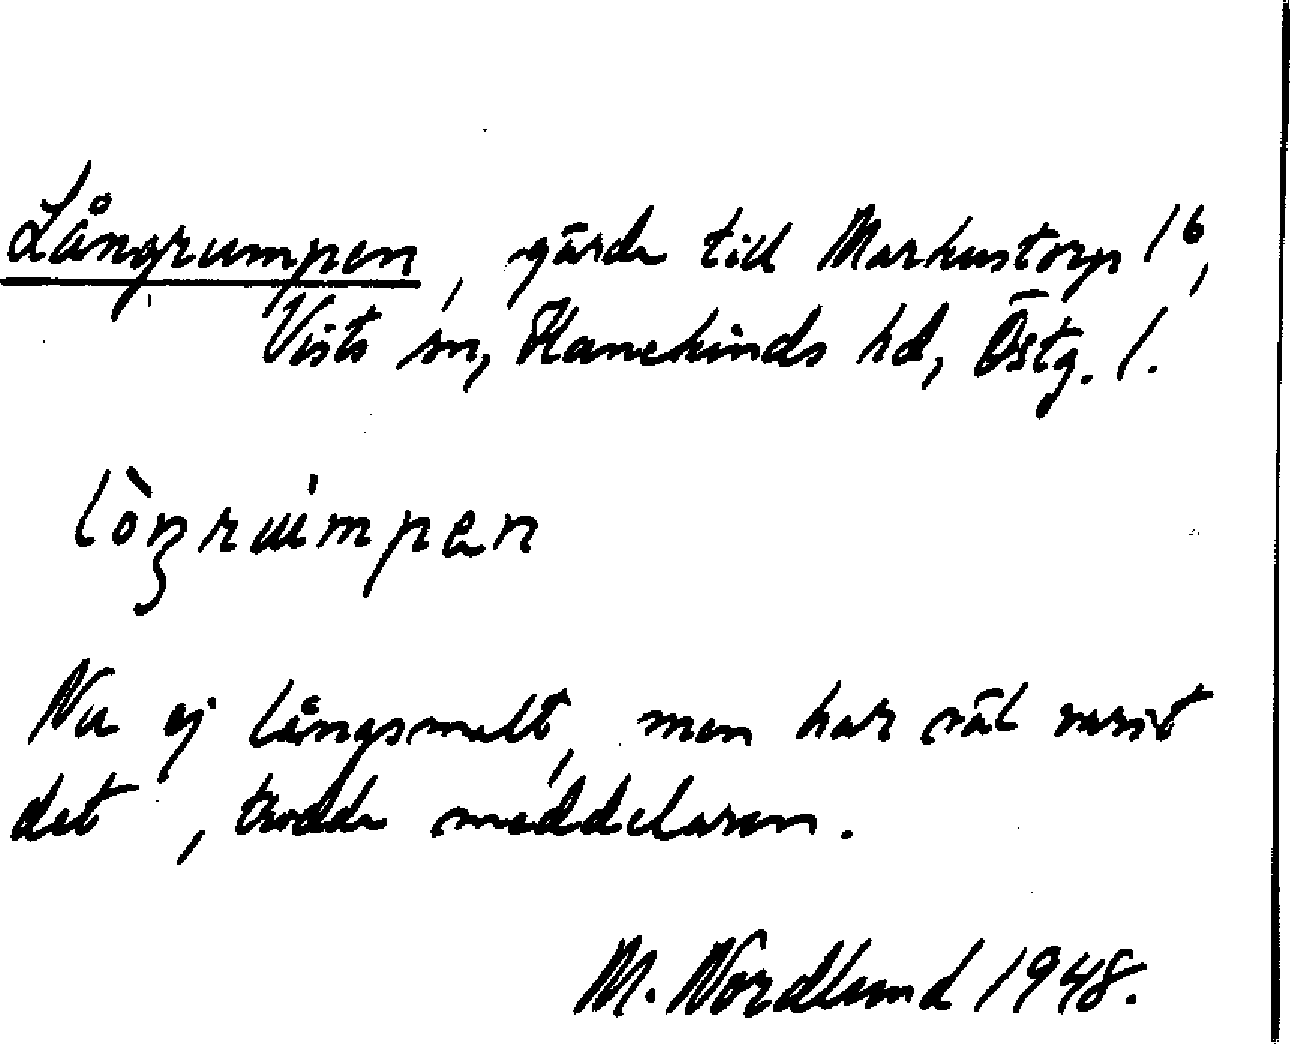 Långrumpen, gärde till Markustorp 1⁶,
Vists sn, Hanekinds hd, Östg. l.
lòŋrumpen
Nu ej långsmalt, men har väl varit
det, trodde meddelaren.
M. Nordlund 1948.